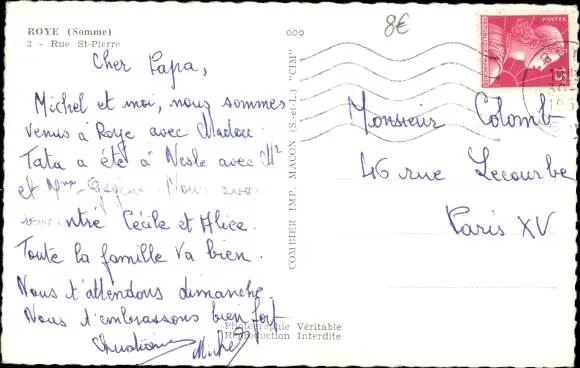 ROYE (Somme)
3 - Rue St-Pierre
8€
POSTES
15F
Cher Papa,
Michel et moi, nous sommes
venus à Roye avec Madou.
Tata a été à Nesle avec Mr
et Mme Nous avons
entré Cécile et Alice.
Toute la famille va bien.
Nous t'attendons dimanche
Nous t'embrassons bien fort
Michel
Monsieur Colomb
46 rue Lecourbe
Paris XV
COMBIER IMP. MACON (S.-et-L.) "CIM"
Photographie Véritable
Reproduction Interdite